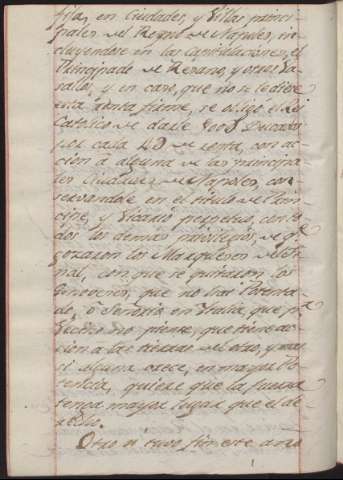 fixa, en Ciudades, y Villas princi-
pales del Reyno de Napoles, in-
cluyendose en las Capitulaciones, el
Principado de Renano, y otros Va-
sallos, y en caso, que no se le diere
esta renta firme, se obligó el Rei
Catolico de darle 800 $ Ducados
por cada 40 de renta, con ac-
cion a alguna de las principa-
les Ciudades de Napoles, con-
servandole en el titulo de Prin-
cipe, y Vicario perpetuo, con to-
dos los demas privilegios, de qe
gozaron los Marqueses de Fi-
nal, con que se quitaron los
Ginoveses, que no hai Potenta-
do, o Señorio en Italia, que pr
derecho no piense, que tiene ac-
cion a las tierras del otro, y mas
si alguna crece, en mayor Po-
tencia, quiere que la fuerza
tenga mayor lugar que el de-
recho.
Otro si tuvo fin este año